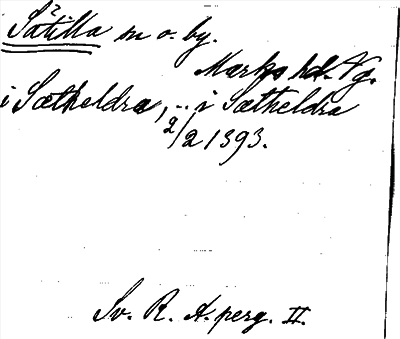 Sätilla sn o. by.
Marks hd. Vg.
i Sætheldra, .. i Sætheldra
2/2 1393.
Sv. R. A. perg. II.